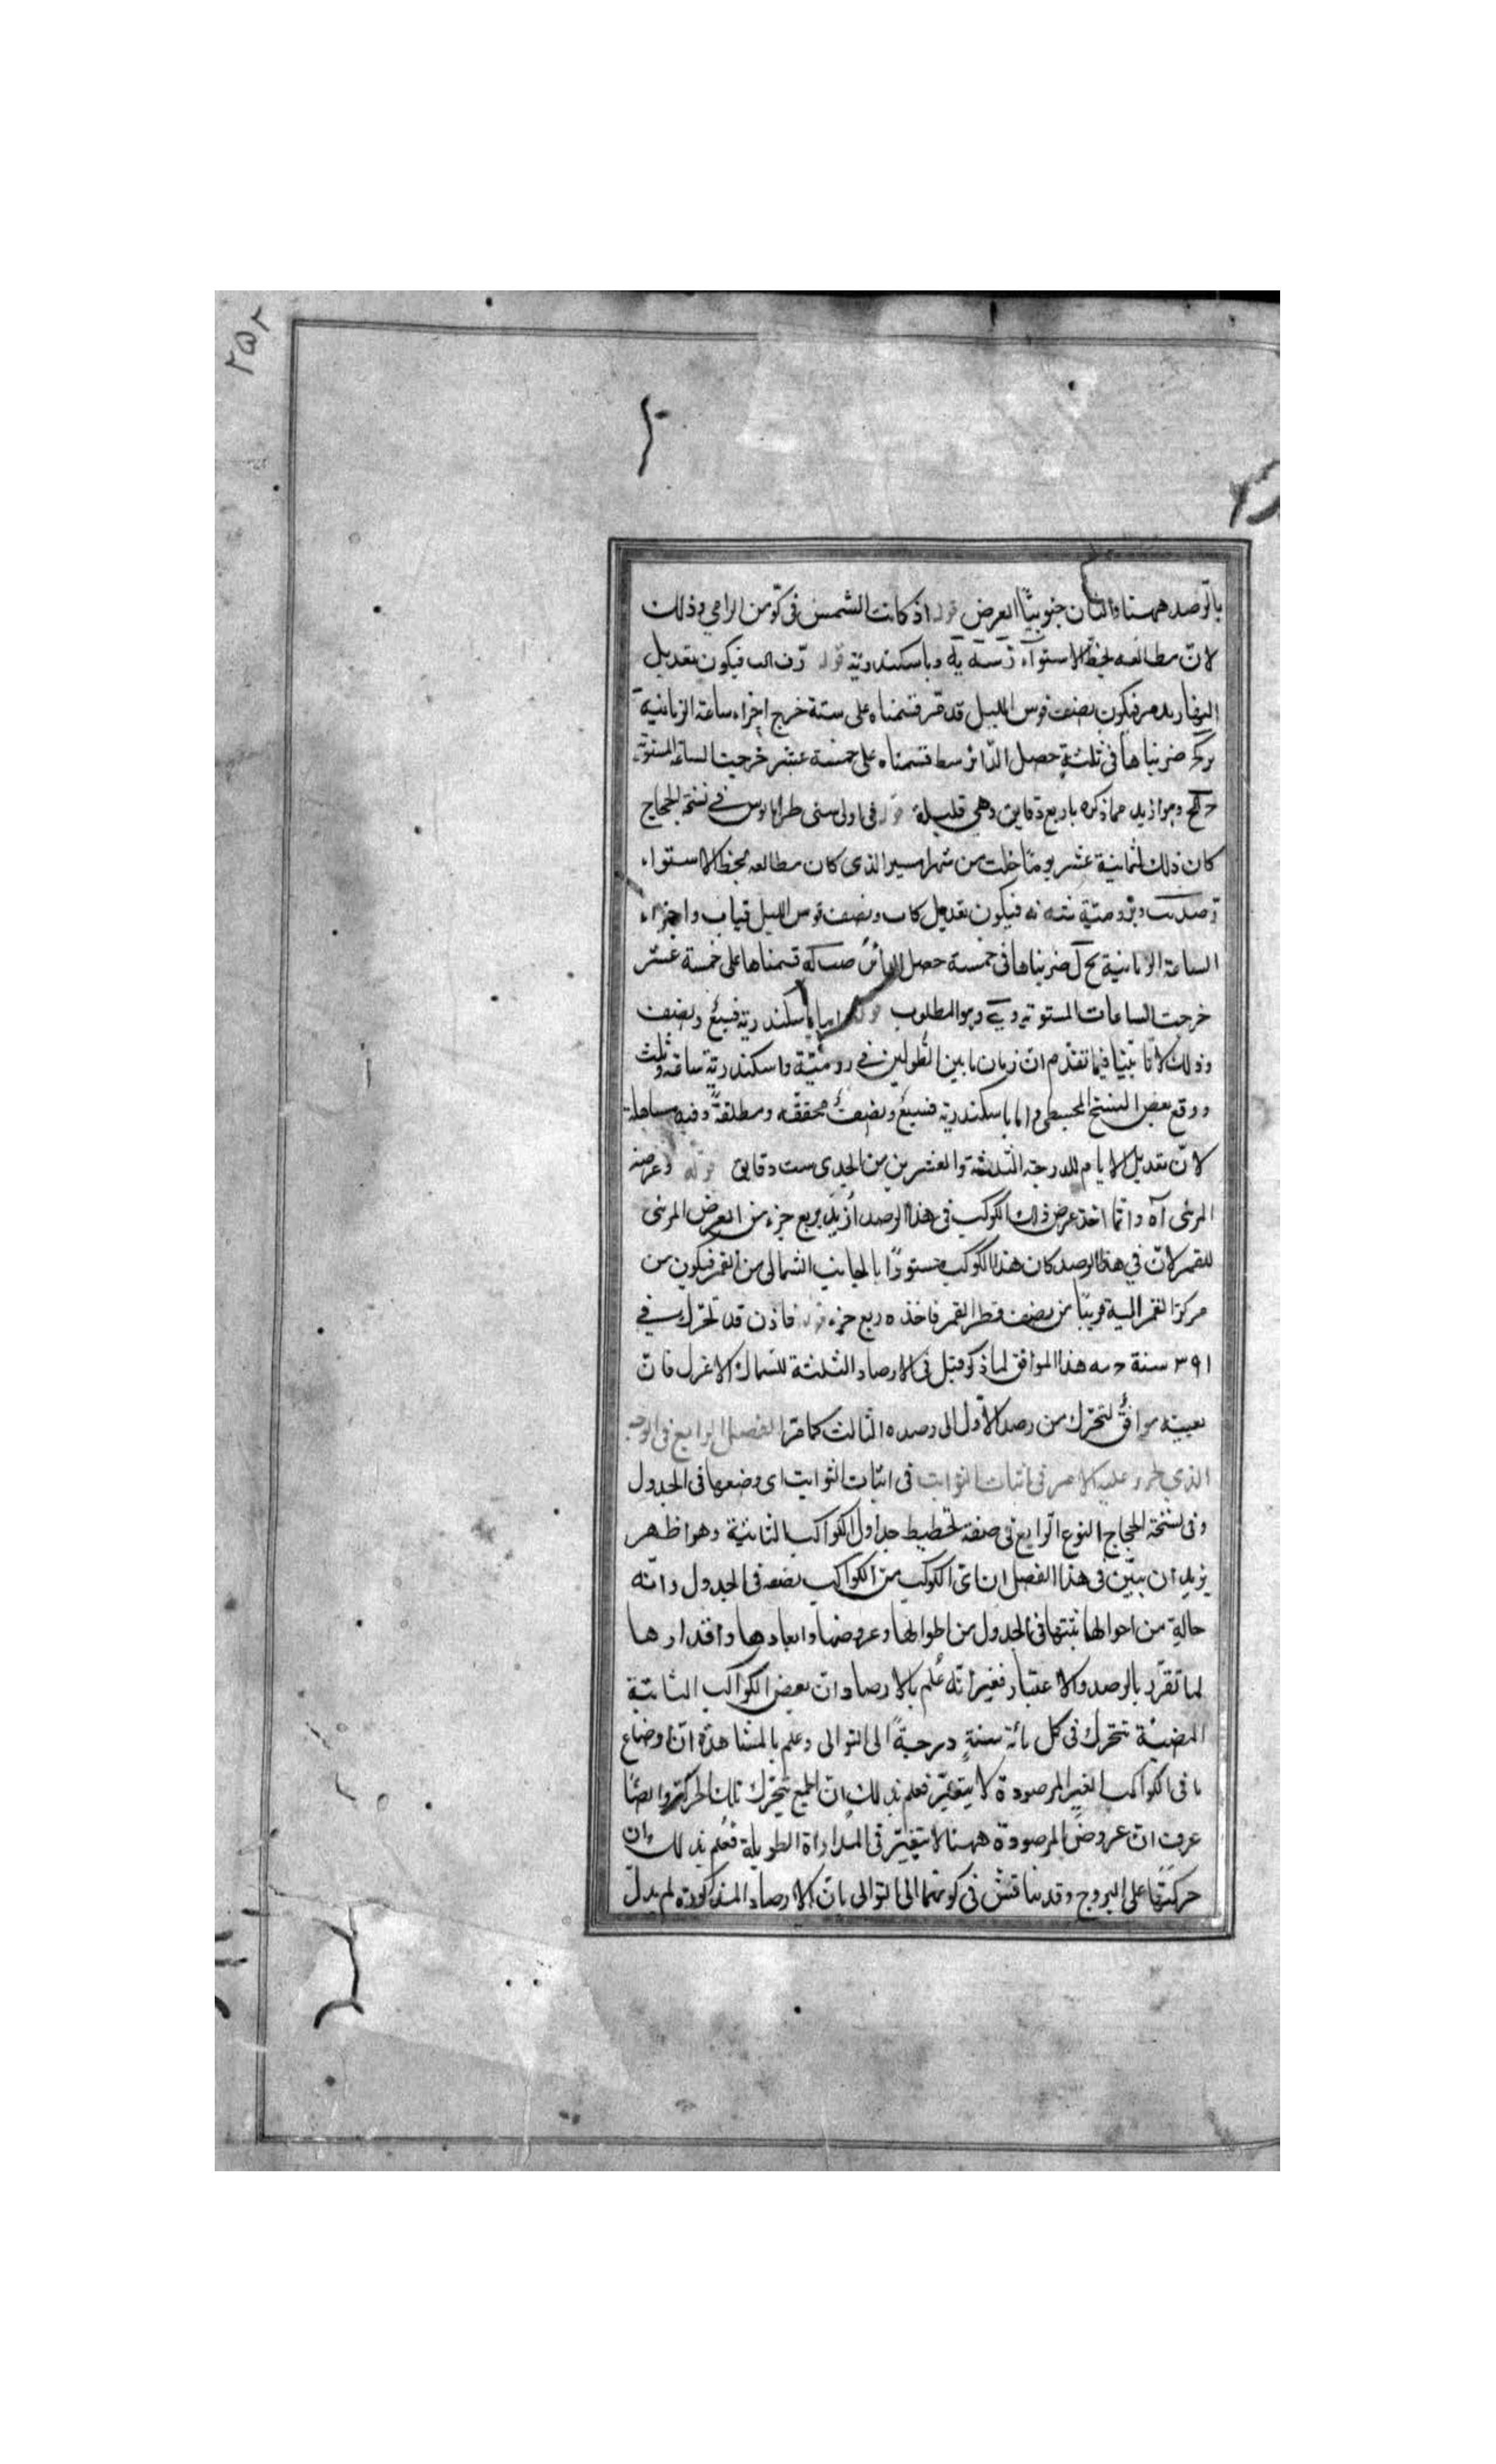 ۲۵۲
بالرصد ههنا والثان جنوبيتا العرض قوله اذ كانت الشمس فى كو من الرامي وذلك
لانّ مطالعه لخط الاستواء رسه يه وباسكندرية قوله فيكون تعديل
النهار فيكون نصف قوس الليل قسمناه على ستة خرج اجزاء ساعة الزمانية
ضربناها فى ثلثة حصل الدائر سط قسمناه على خمسة عشر خرجت الساعة المستوية
وهو ازيد مما ذكره باربع دقايق وهي قليلة قوله فى اولى سنى طرايانوس في نسخة الحجاج
كان ذلك لثمانية عشر يومًا خلت من شهر امسير الذى كان مطالعه بخط الاستواء
وبرومتية نقه نه فيكون تعديل كاب ونصف قوس الليل قياب واجزاء
الساعة الزمانية يح ل ضربناها فى خمسة حصل الدائر صب له قسمناها على خمسة عشر
خرجت الساعات المستوية وهو المطلوب قوله اما باسكندرية فسبعٌ ونصف
وذلك لانا بيّنا فيما تقدّم ان زمان ما بين الطولين في رومتية واسكندرية ساعة وثلث
ووقع بعض النسخ المجسطى واما باسكندرية فسبعٌ ونصفٌ محققه ومطلقةً وفيه مساهلة
لانّ تعديل الايام للدرجة الثلثة والعشرين من الجدى ست دقايق قوله وعرضه
المرئى آه وانما اخذ عرض ذلك الكوكب فى هذا الرصد ازيد بربع جزء من العرض المرئى
للقمر لانّ في هذا الرصد كان هذا الكوكب مستورًا بالجانب الشمالى من القمر فيكون من
مركز القمر اليه قريبًا من نصف قطر القمر فاخذه ربع جزء قوله فاذن قد تحرك في
۳۹۱ سنة ح مه هذا الموافق لما ذكر قبل فى الارصاد الثلثة للسماك الاعزل فانّ
بعينه موافقٌ لتحرّك من رصد الاول الى رصده الثالث كما مرّ الفصل الرابع فى الوجه
الذي عليه الامر فى اثبات الثوابت فى اثبات الثوابت اى وضعها فى الجدول
وفى نسخة الحجاج النوع الرابع فى صفة تخطيط جداول الكواكب الثابتة وهو اظهر
يريد ان يبيّن فى هذا الفصل ان اىّ الكوكب من الكواكب نضعه فى الجدول وانّه
حالةٍ من احوالها نثبتها فى الجدول من اطوالها وعروضها وابعادها واقدارها
لما تقرّر بالرصد والاعتبار فغير انّه عُلم بالارصاد ان بعض الكواكب الثابتة
المضيئة تتحرك فى كل مائة سنةٍ درجةً الى التوالى وعلم بالمشاهدة انّ اوضاع
باقى الكواكب الغير المرصودة لا يتغيّر فعلم بذلك انّ الجميع يتحرّك تلك الحركة وايضًا
عرف ان عروض المرصودة ههنا لا يتغيّر فى المدارات الطويلة فعُلم بذلك ان
حركتها على البروج وقد يناقش فى كونها الى التوالى بانّ الارصاد المذكورة لم يدلّ